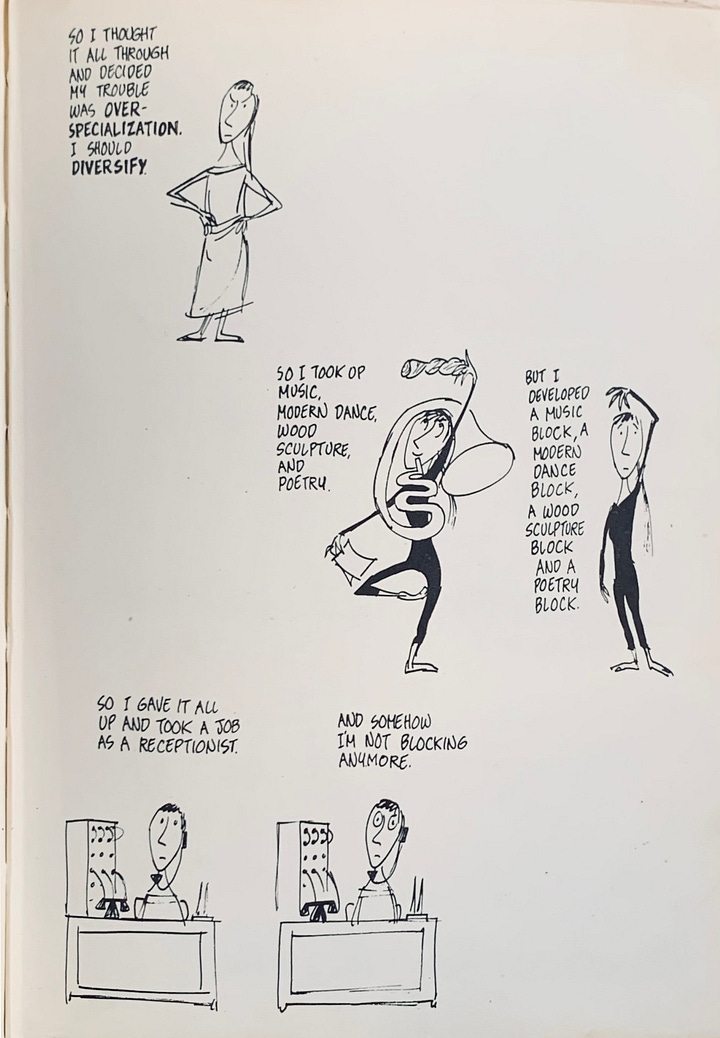 SO I THOUGHT
IT ALL THROUGH
AND DECIDED
MY TROUBLE
WAS OVER-
SPECIALIZATION.
I SHOULD
DIVERSIFY.
SO I TOOK UP
MUSIC,
MODERN DANCE,
WOOD
SCULPTURE,
AND
POETRY.
BUT I
DEVELOPED
A MUSIC
BLOCK, A
MODERN
DANCE
BLOCK,
A WOOD
SCULPTURE
BLOCK
AND A
POETRY
BLOCK.
SO I GAVE IT ALL
UP AND TOOK A JOB
AS A RECEPTIONIST.
AND SOMEHOW
I'M NOT BLOCKING
ANYMORE.